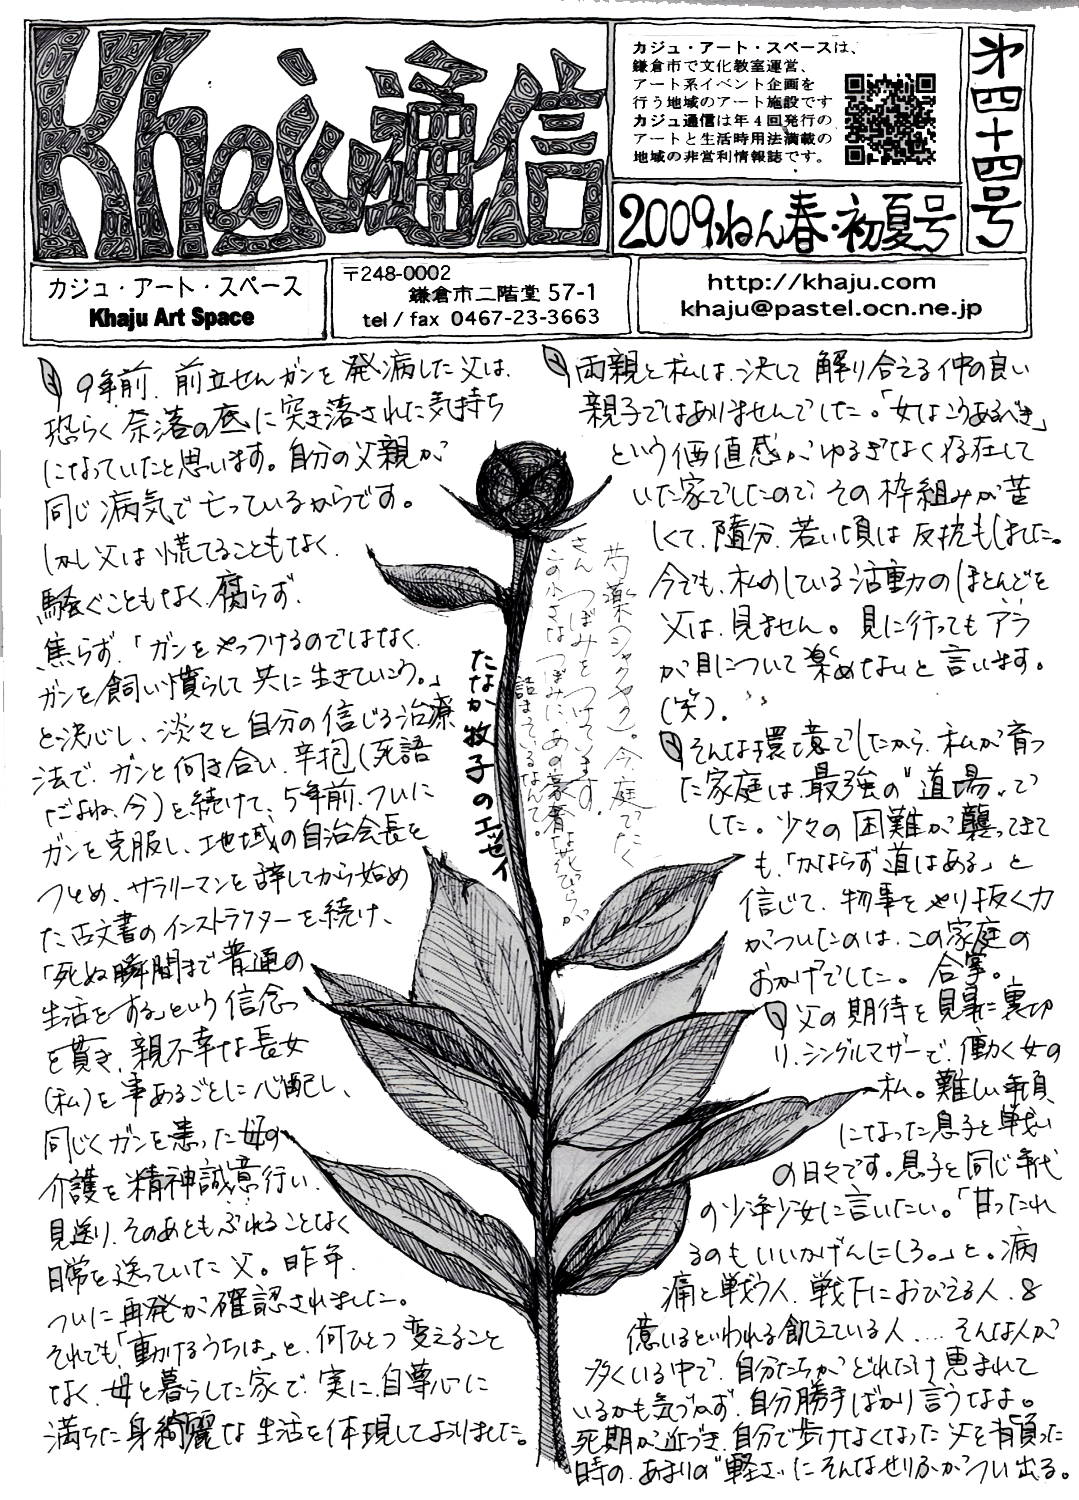 Khaju通信
カジュ・アート・スペースは、
鎌倉市で文化教室運営、
アート系イベント企画を
行う地域のアート施設です
カジュ通信は年4回発行の
アートと生活時用法満載の
地域の非営利情報誌です。
第四十四号
2009ねん春・初夏号
カジュ・アート・スペース
Khaju Art Space
〒248-0002
鎌倉市二階堂 57-1
tel / fax 0467-23-3663
http://khaju.com
khaju@pastel.ocn.ne.jp
9年前、前立せんガンを発病した父は、
恐らく奈落の底に突き落された気持ち
になっていたと思います。自分の父親が
同じ病気で亡っているからです。
しかし父は慌てることもなく、
騒ぐこともなく、腐らず、
焦らず、「ガンをやっつけるのではなく、
ガンを飼い慣らして共に生きていこう。」
と決心し、淡々と自分の信じる治療
法で、ガンと向き合い、辛抱(死語
だよね、今)を続けて、5年前、ついに
ガンを克服し、地域の自治会長を
つとめ、サラリーマンを辞してから始め
た古文書のインストラクターを続け、
「死ぬ瞬間まで普通の
生活をする」という信念
を貫き、親不幸な長女
(私)を事あるごとに心配し、
同じくガンを患った母の
介護を精神誠意行い、
見送り、そのあともぶれることなく
日常を送っていた父。昨年、
ついに再発が確認されました。
それでも「動けるうちは」と、何ひとつ変えること
なく、母と暮らした家で、実に、自尊心に
満ちた身綺麗な生活を体現しておりました。
たなか牧子のエッセイ
芍薬(シャクヤク)。今、庭でたく
さん、つぼみをつけています。
この小さなつぼみに、あの豪奢な花びらが
詰まっているなんて。
両親と私は、決して解り合える仲の良い
親子ではありませんでした。「女はこうあるべき」
という価値感がゆるぎなく存在して
いた家でしたので、その枠組みが苦
しくて、随分、若い頃は反抗もしました。
今でも、私のしている活動のほとんどを
父は、見ません。見に行ってもアラ
が目について楽めないと言います。
(笑)。
そんな環境でしたから、私が育っ
た家庭は、最強の"道場"で
した。少々の困難が襲ってきて
も、「かならず道はある」と
信じて、物事をやり抜く力
がついたのは、この家庭の
おかげでした。合掌。
父の期待を見事に裏切
り、シングルマザーで、働く女の
私。難しい年頃
になった息子と戦い
の日々です。息子と同じ年代
の少年少女に言いたい。「甘ったれ
るのもいいかげんにしろ。」と。病
痛と戦う人、戦下におびえる人、8
億いるといわれる飢えている人....そんな人が
多くいる中で、自分たちがどれだけ恵まれて
いるかも気づかず、自分勝手ばかり言うなよ。
死期が近づき、自分で歩けなくなった父を背負った
時の、あまりの"軽さ"にそんなせりふがつい出る。